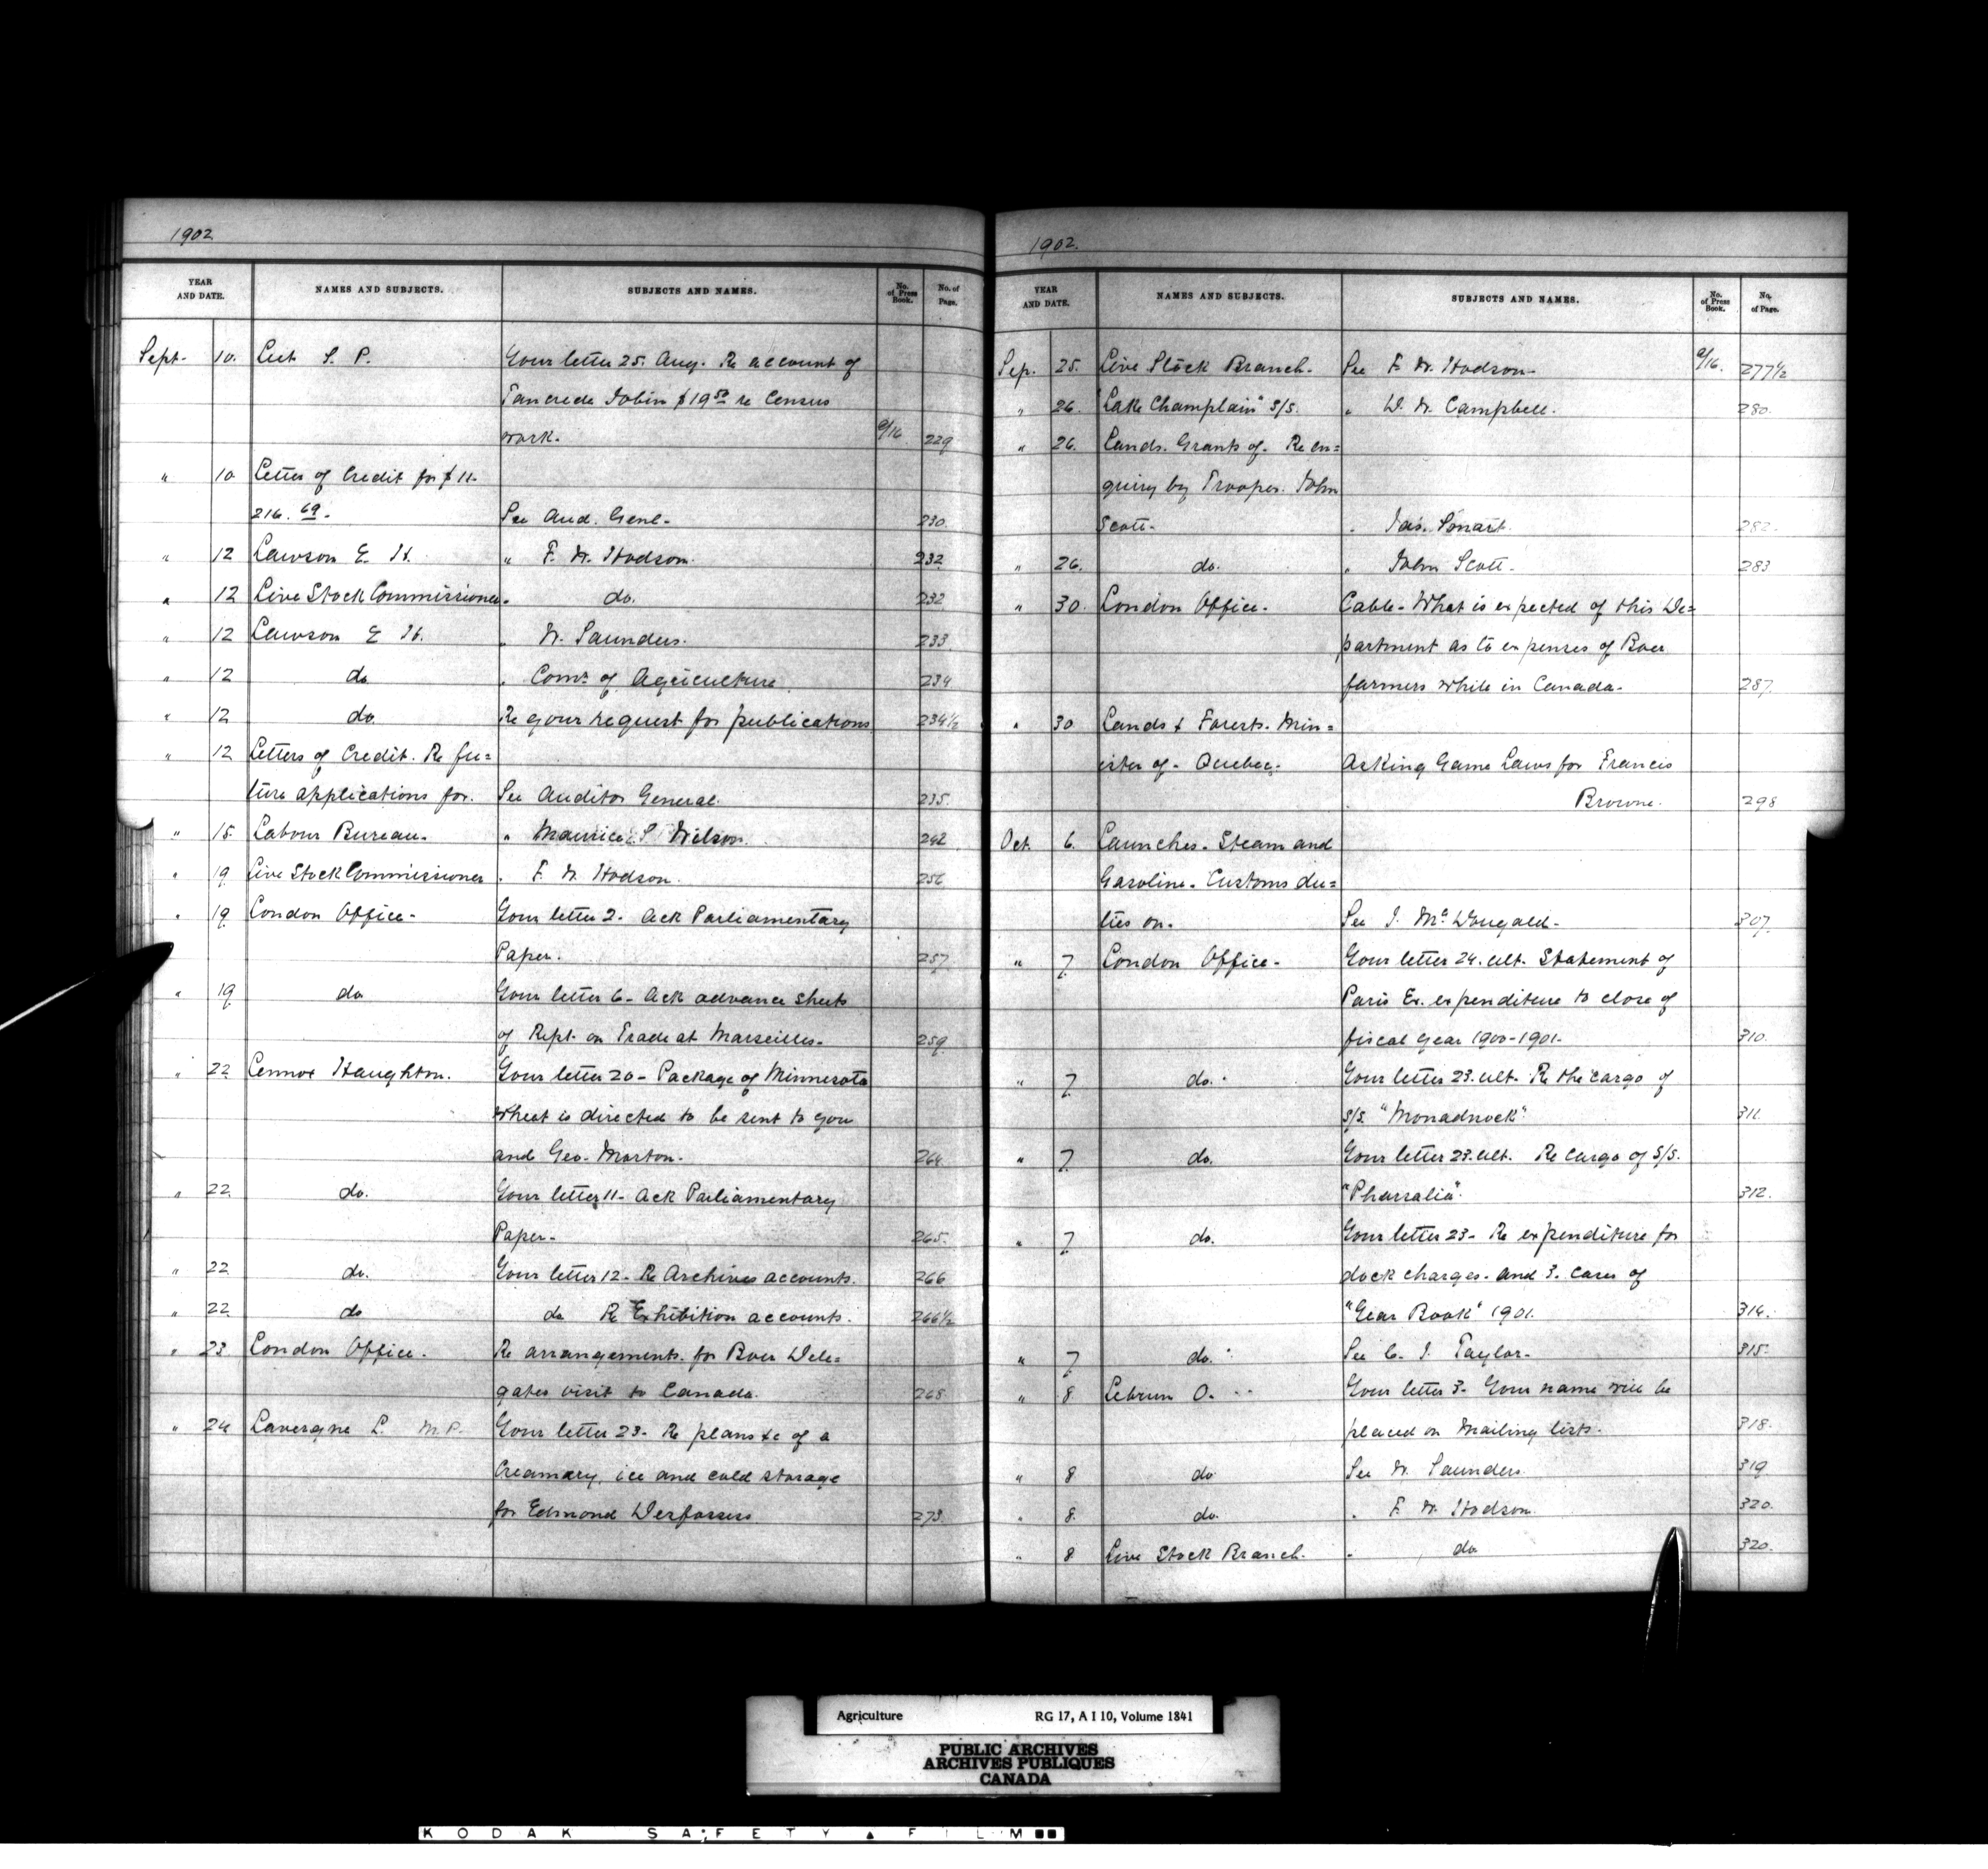 1902
YEAR AND DATE. NAMES AND SUBJECTS. SUBJECTS AND NAMES. No. of Press Book. No. of Page.
Sept. 10. S. P. Your letter 25. Aug. Re account of
Tancrede Jobin $19 50 re Census
work. 229
" 10 Letter of Credit for $11-
216. 69. See Aud. Genl. 230.
" 12 Lawson E. H. " F. W. Hodson. 232
" 12 Live Stock Commissioner " do. 232
" 12 Lawson E H. " W. Saunders. 233
" 12 do " Comr. of Agriculture 234
" 12 do. Re your request for publications 234 1/2
" 12 Letters of Credit. Re fu=
ture applications for. See Auditor General. 235.
" 15. Labour Bureau. " Maurice S. Wilson. 242
" 19 Live Stock Commissioner " F. W. Hodson. 256
" 19 London Office- Your letter 2- Ack Parliamentary
Paper. 257
" 19 do Your letter 6- Ack advance sheets
of Rept. on Trade at Marseilles. 259
" 22 Lennox Haughton. Your letter 20- Package of Minnesota
wheat is directed to be sent to you
and Geo. Morton. 264
" 22 do. Your letter 11- Ack Parliamentary
Paper- 265.
" 22 do. Your letter 12- Re Archives accounts. 266
" 22 do do Re Exhibition accounts. 266 1/2
" 23 London Office. Re arrangements for Boer Dele=
gates visit to Canada. 268
" 24 Lavergne L. M.P. Your letter 23- Re plans &c of a
Creamery, ice and cold storage
for Edmond Desfosses 273.
1902.
YEAR AND DATE. NAMES AND SUBJECTS. SUBJECTS AND NAMES. No. of Press Book. No. of Page.
Sep. 25. Live Stock Branch. See F. W. Hodson- 277 1/2
" 26 "Lake Champlain" S/S. " D. W. Campbell. 280.
" 26 Lands. Grants of- Re en=
quiry by Trooper. John
Scott- " Jas. Smart. 282.
" 26. do. " John Scott- 283
" 30. London Office- Cable- What is expected of this De=
partment as to expenses of Boer
farmers while in Canada- 287.
" 30 Lands & Forests. Min=
ister of- Quebec. Asking Game Laws for Francis
Browne. 298
Oct. 6. Launches- Steam and
Gasoline- Customs du=
ties on. See J. McDougald- 307.
" 7. London Office- Your letter 24. ult. Statement of
Paris Ex. expenditure to close of
fiscal year 1900-1901- 310.
" 7. do. Your letter 23. ult. Re the cargo of
S/S. "Monadnock" 311.
" 7. do. Your letter 23. ult. Re cargo of S/S.
"Pharsalia" 312.
" 7. do. Your letter 23- Re expenditure for
dock charges- and 3. cases of
"Year Book" 1901. 314.
" 7. do. See C. J. Taylor- 315.
" 8. Lebrun O. Your letter 3- Your name will be
placed on mailing lists. 318.
" 8 do. See W. Saunders 319
" 8. do. " F. W. Hodson. 320.
" 8 Live Stock Branch. " do 320.
Agriculture RG 17, A I 10, Volume 1841
PUBLIC ARCHIVES
ARCHIVES PUBLIQUES
CANADA
KODAK SAFETY FILM